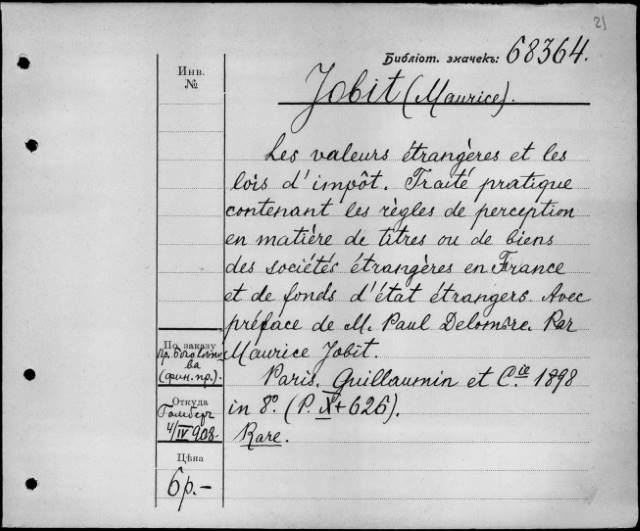 21
Библіот. значекъ: 68364.
Инв.
№
Jobit (Maurice).
Les valeurs étrangères et les
lois d'impôt. Traité pratique
contenant les règles de perception
en matière de titres ou de biens
des sociétés étrangères en France
et de fonds d'état étrangers. Avec
préface de M. Paul Delombre. Par
Maurice Jobit.
Paris. Guillaumin et C.ie 1898
in 8°. (P. X + 626).
Rare.
По заказу
пр.
ва
(фин. пр.).
Откуда
4/IV 908
Цѣна
6 р. –